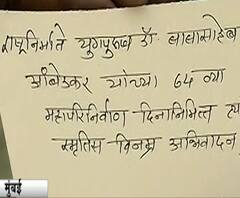 राष्ट्रनिर्माते युगपुरुष डॉ. बाबासाहेब
आंबेडकर यांच्या 64 व्या
महापरिनिर्वाण दिनानिमित्त
स्मृतिस विनम्र अभिवादन
मुंबई